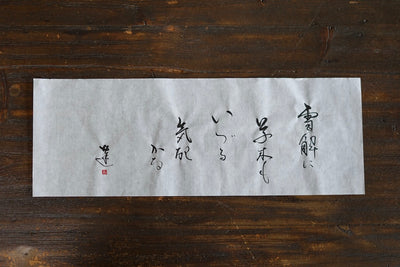 雪解に
草木も
いづる
気配
かな
蓮